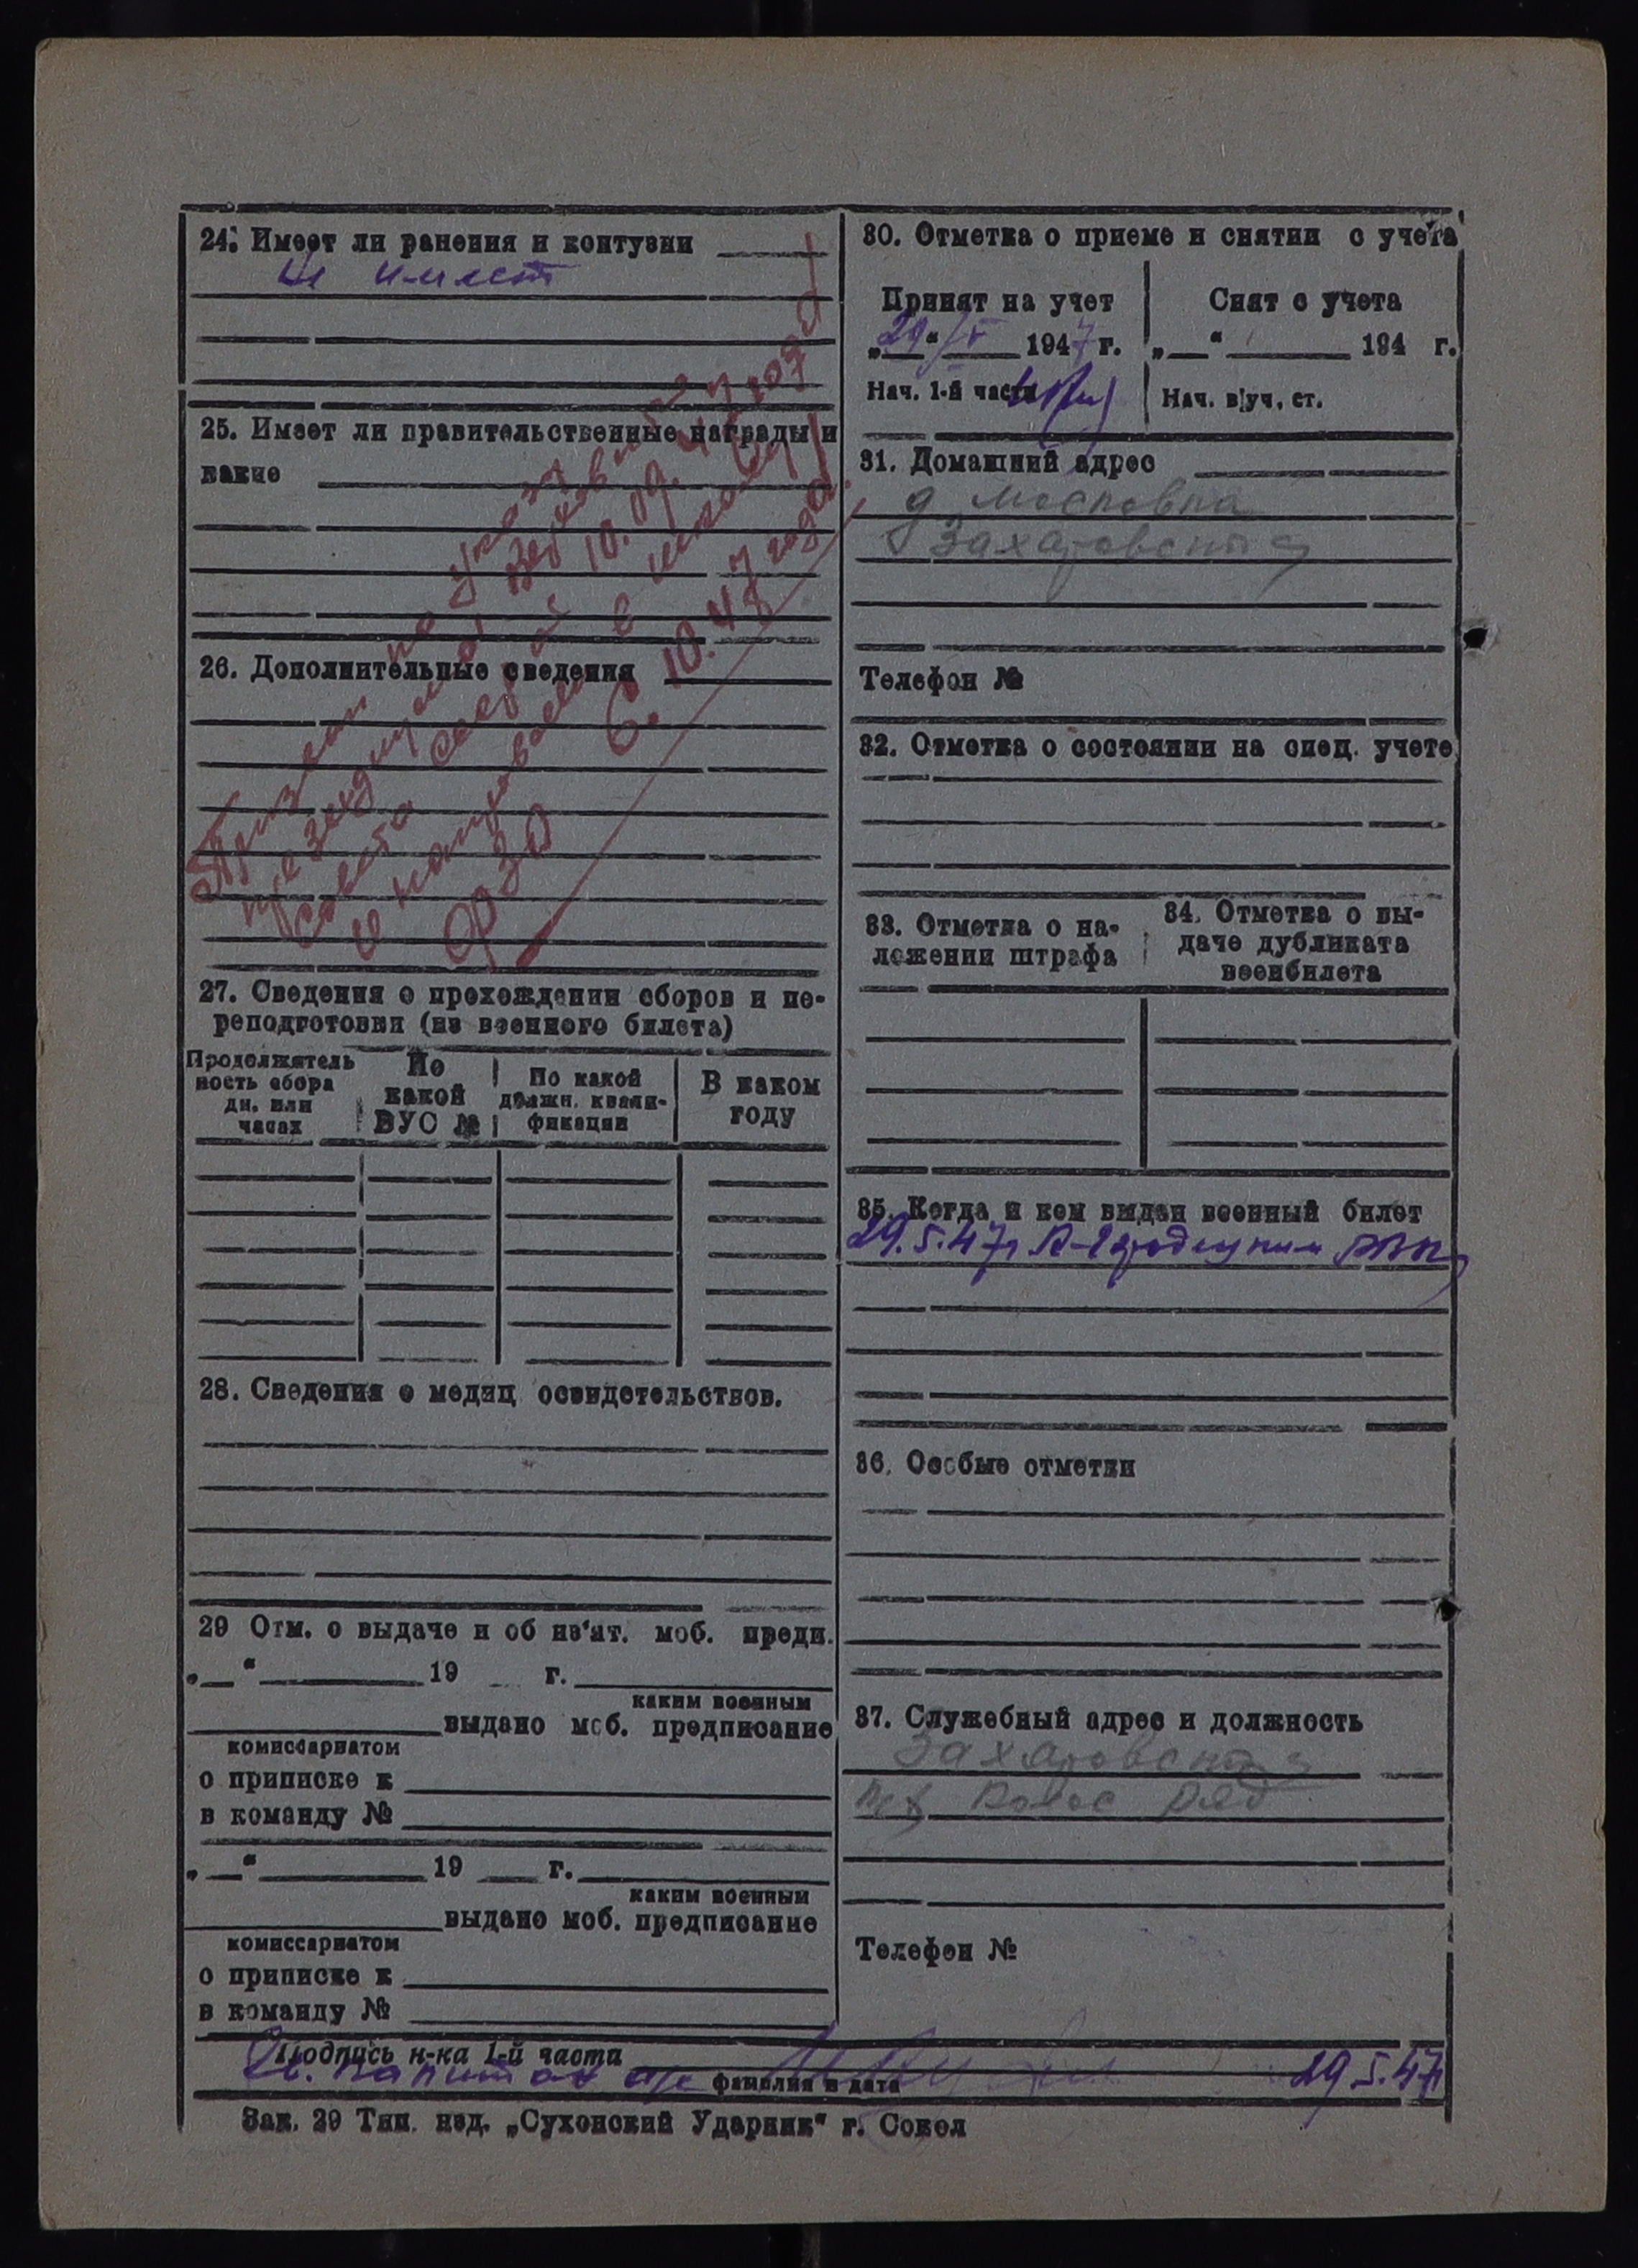 24. Имеет ли ранения и контузии
не имеет
25. Имеет ли правительственные награды и
какие
26. Дополнительные сведения
Призван по указу
президиума Верховного
совета СССР от 10.09.47 года
и направлен в школу
ФЗО 6.10.47 года.
27. Сведения о прохождении сборов и пе-
реподготовки (из военного билета)
Продолжитель
ность сбора
дн. или
часах
По
какой
ВУС №
По какой
должн. квали-
фикации
В каком
году
28. Сведения о медиц. освидетельствов.
29 Отм. о выдаче и об из'ят. моб. предп.
„ “ 19 г.
каким военным
выдано моб. предписание
комиссариатом
о приписке к
в команду №
„ “ 19 г.
каким военным
выдано моб. предписание
комиссариатом
о приписке к
в команду №
30. Отметка о приеме и снятии с учета
Принят на учет
„29“ V 1947 г.
Нач. 1-й части
Снят с учета
„ “ 194 г.
Нач. в/уч. ст.
31. Домашний адрес
д
Захаровский
Телефон №
32. Отметка о состоянии на спец. учете
33. Отметка о на-
ложении штрафа
34. Отметка о вы-
даче дубликата
военбилета
35. Когда и кем выдан военный билет
29.5.47г РВК
36. Особые отметки
37. Служебный адрес и должность
Захаровский
ряд
Телефон №
Подпись н-ка 1-й части
Ст. капитан а/с
фамилия и дата
29.5.47
Зак. 29 Тип. изд. „Сухонский Ударник“ г. Сокол